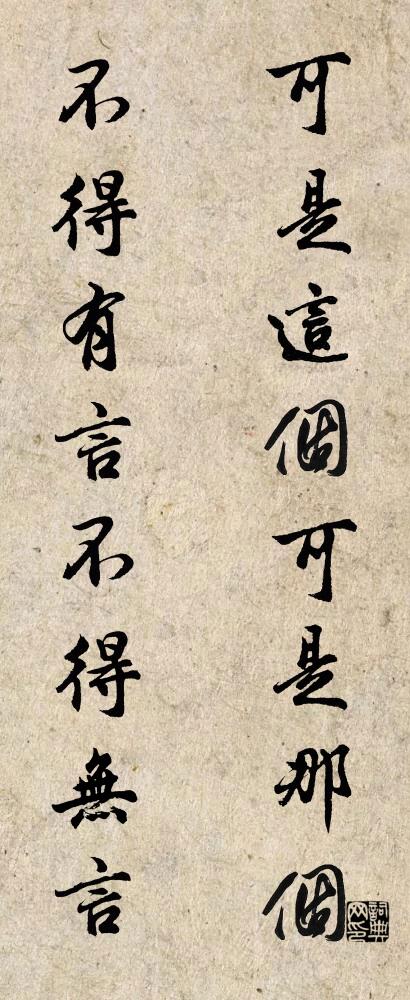 可是這個可是那個
不得有言不得無言
詞典
网印